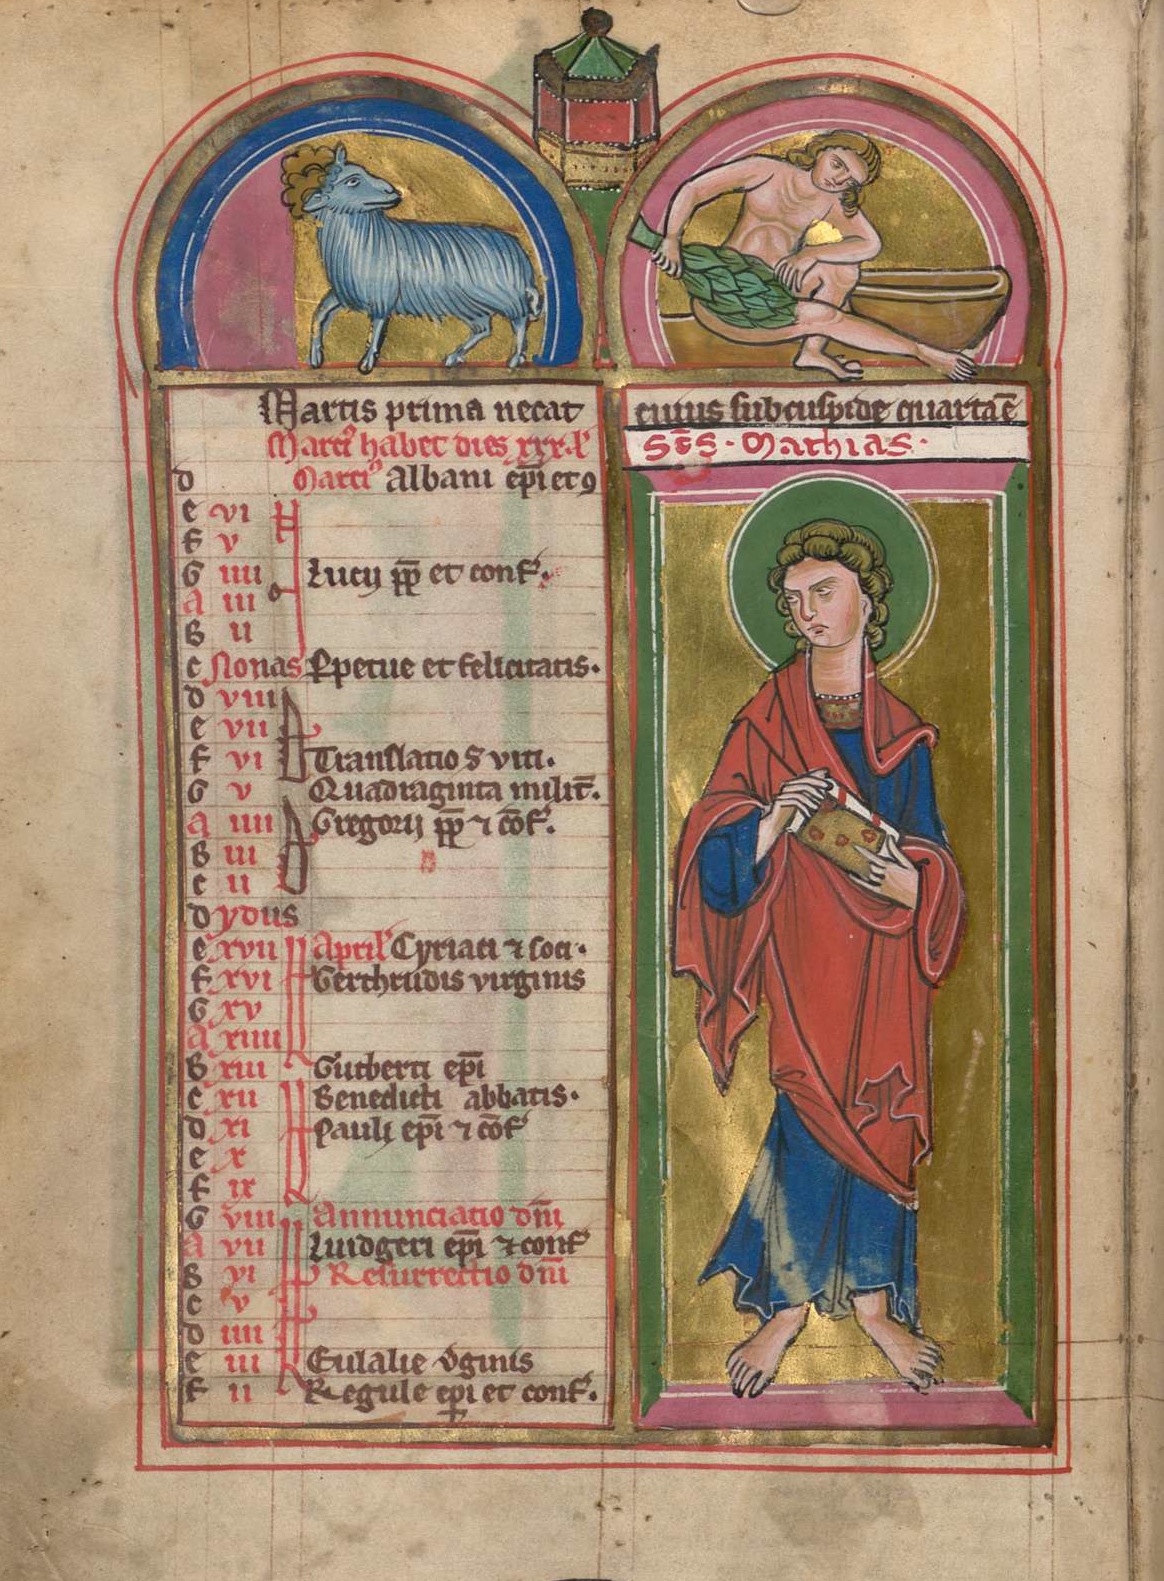 Martis prima necat cuius subcuspide quarta ē
Marcꝰ habet dies xxxi lͥ
Sc̄s · Mathias ·
d Marciꝰ Albani ep̄i et ꝯ
e vi
f v
G iiii Lucij pp̄ et conf̄.
a iii
B ii
c Nonas Ppetue et felicitatis.
d viii
e vii
f vi Translatio S viti.
G v Quadraginta milit̄.
a iiii Gregorij pp̄ ⁊ cōf.
B iii
c ii
d ydus
e xvii April' Cyriaci ⁊ soci.
f xvi Gerthrudis virginis
G xv
A xiiii
B xiii Gutberti ep̄i
c xii Benedicti abbatis.
d xi Pauli ep̄i ⁊ cōf
e x
f ix
G viii Annunciatio dn̄i
A vii Luidgeri ep̄i ⁊ conf
B vi Resurrectio dn̄i
c v
d iiii
e iii Eulalie v̄ginis
f ii Regule ep̄i et conf̄.